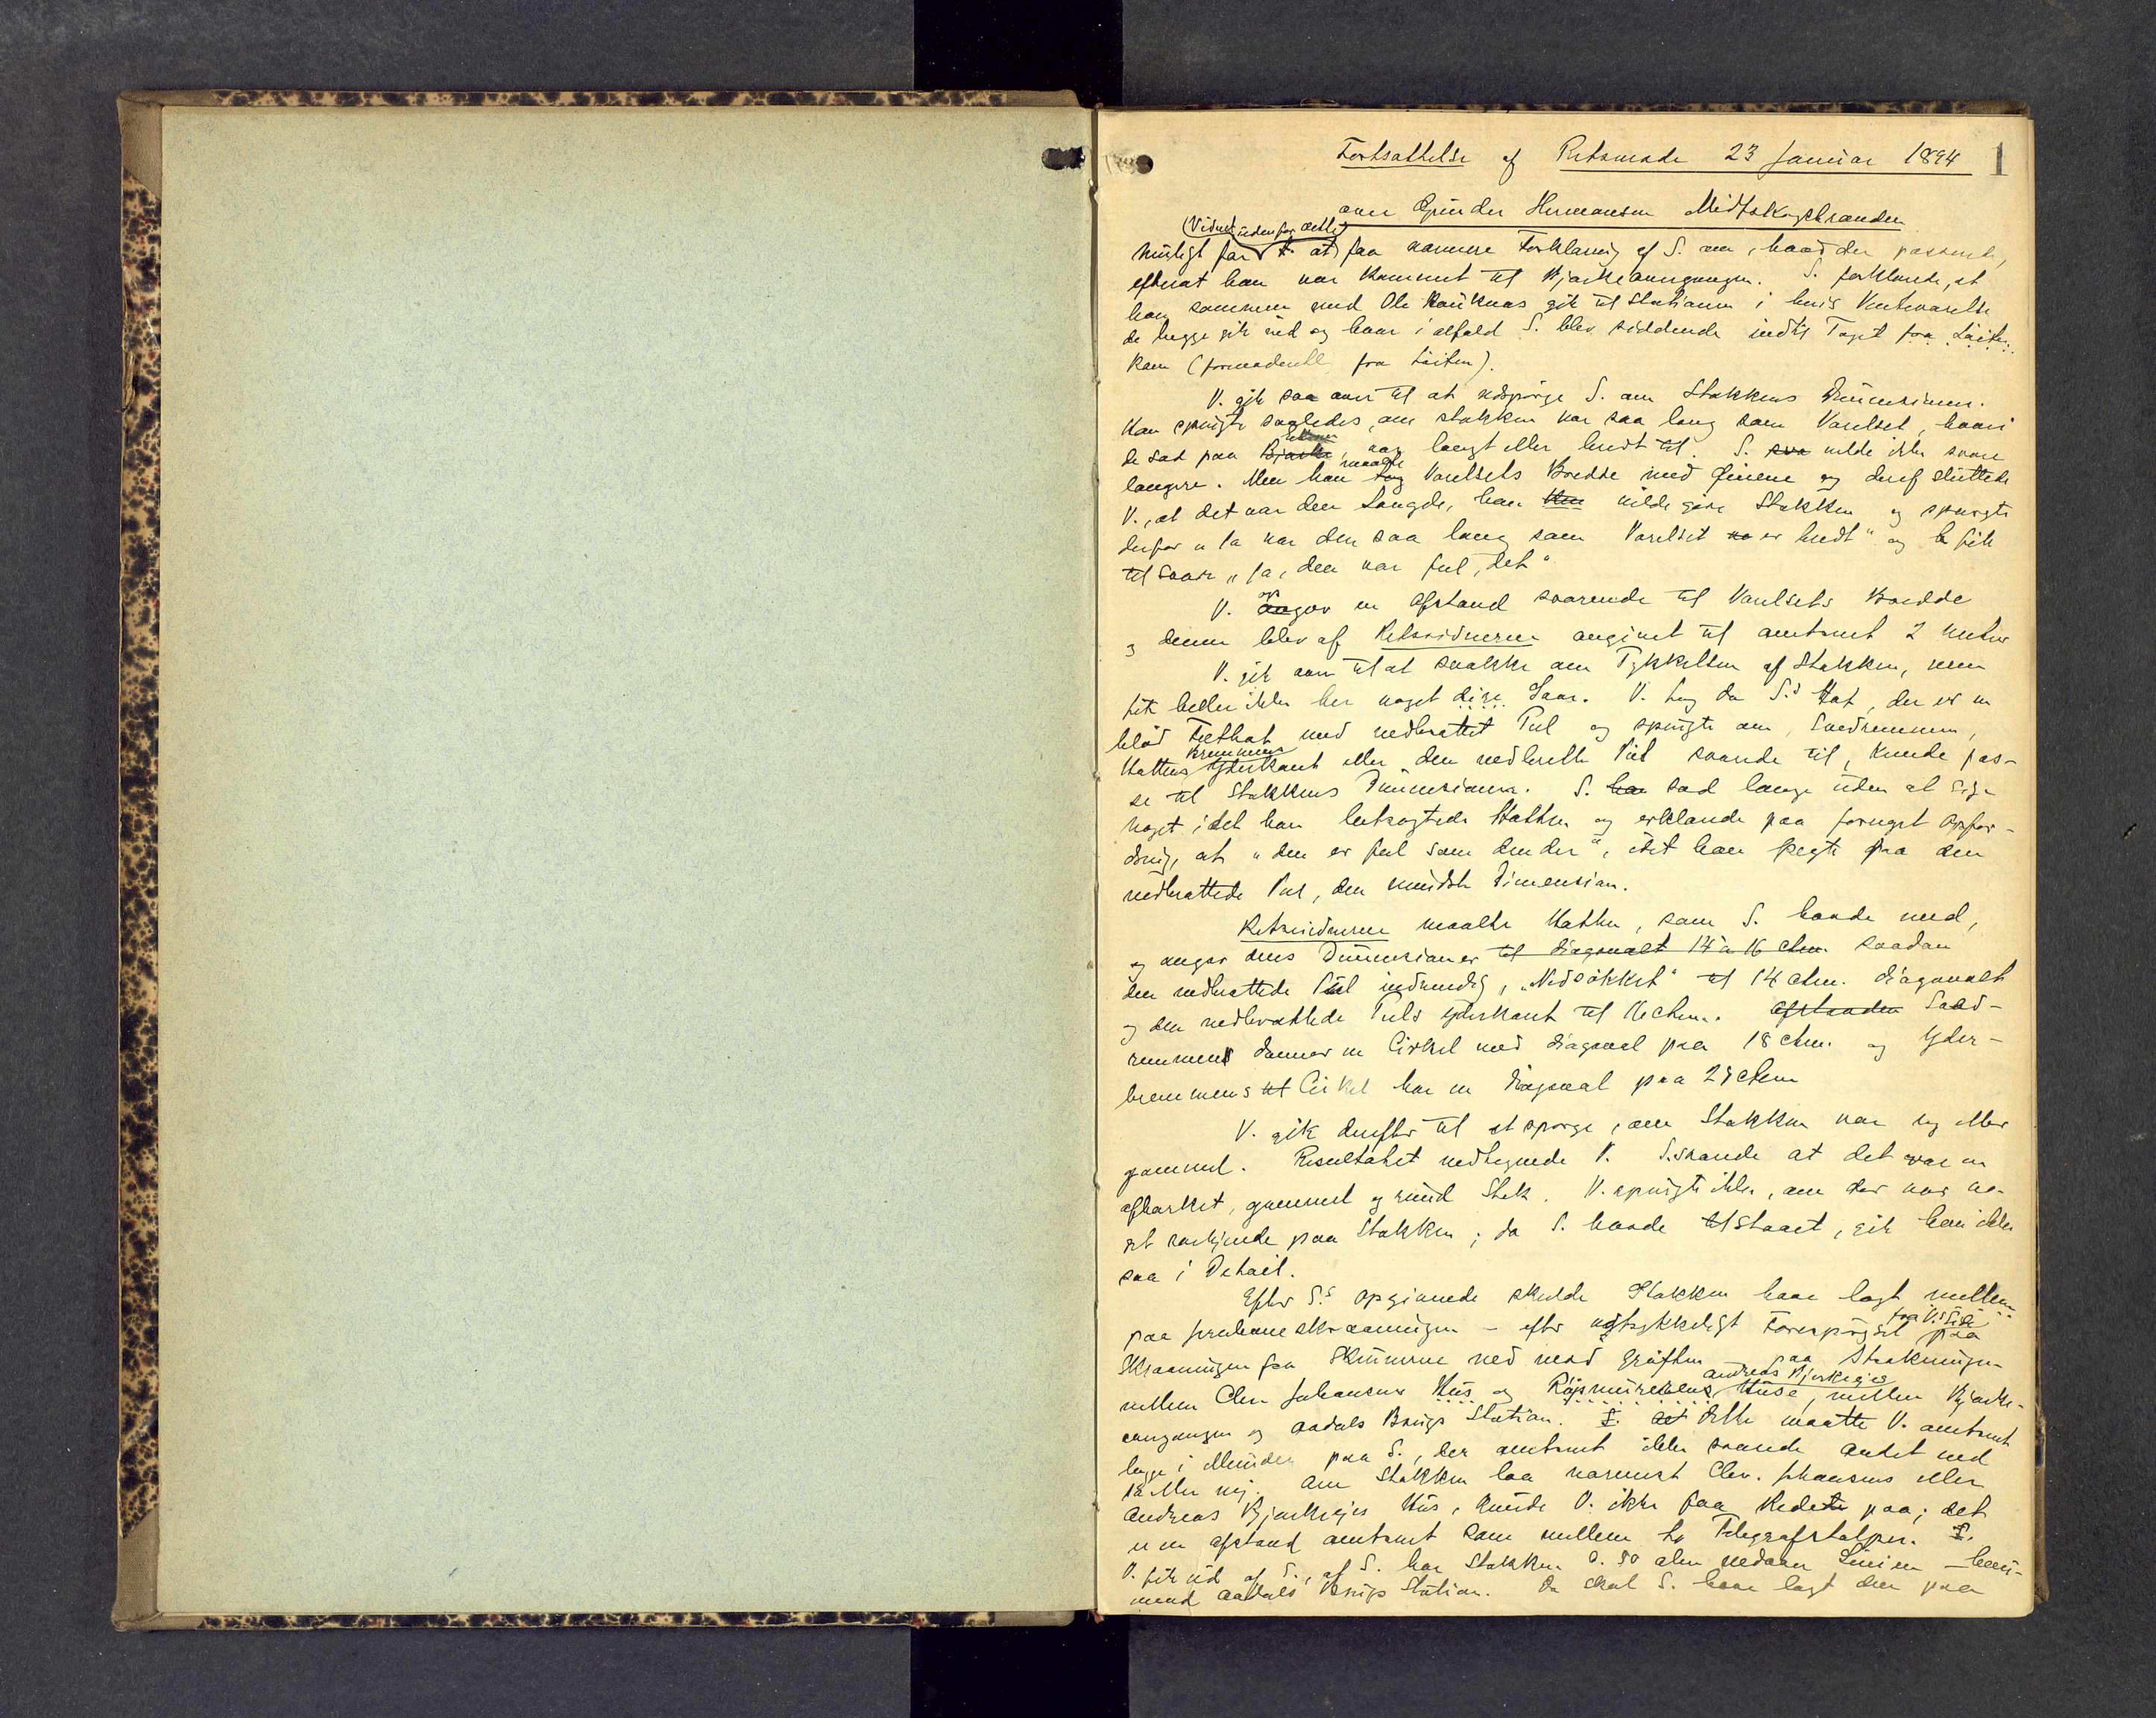 Fortsættelse af Retsmøde 23 Januar 1894 1
over Gunder Hermansen Midtskogbranden
(Vidnet udenfor dette)
muligt for at faa nærmere Forklaring af S. om, hvad der passerede,
efterat han var kommet til Bjørkeovergangen. S. forklarede, at
han sammen med Ole gik til Stationen i hvis Venteværelse
de begge gik ind og hvor i alfald S. blev siddende indtil Toget fra Løiten
kom (formodentl. fra Løiten).
V. gik saa over til at udspørge S. om Stokkens Dimensioner.
Han spurgte saaledes, om stokken var saa lang som Værelset, hvori
de sad paa Bjørke, var langt eller bredt til. S. saa vilde ikke svare
længere. Men han tog maalte Værelsets Bredde med Øinene og deraf sluttede
V., at det var den Længde, han vilde give Stokken og spurgte
derfor „Ja var den saa lang som Værelset er bredt" og fik
til Svar „Ja, den var fuld det"
V. opgav en Afstand svarende til Værelsets Bredde
og denne blev af Retsvidnerne angivet til omtrent 2 Meter
V. gik over til at snakke om Tykkelsen af Stokken, men
fik heller ikke her noget dir. Svar. V. tog da S.s Hat, der er en
blød Filthat med nedbrættet Pul og spurgte om, Svedremmen,
Bremmens
Hattens Yderkant eller den nedbrætte Pul svarede til, kunde pas-
se til Stokkens Dimensioner. S. han sad længe uden at sige
noget idet han betragtede Hatten og erklærede paa fornyet Opfor-
dring, at „den er ful som den der", idet han pegte paa den
nedbrættede Pul, den mindste Dimension.
Retsvidnerne maalte Hatten, som S. havde med,
og angav dens Dimensioner til diagonalt 14 à 16 ctm. saadan
den nedbrættede Pul indvendig, „Nedsøkket" til 14 ctm. diagonalt
og den nedbrættede Puls yderkant til 16 ctm. Afstanden Sved-
remmens danner en Cirkel med diagonal paa 18 ctm. og Yder-
bremmens Cirkel har en diagonal paa 28 ctm
V. gik derefter til at spørge, om Stokken var ny eller
gammel. Resultatet nedtegnede V. S. svarede at det var en
afbarket, gammel og rund Stok. V. spurgte ikke, om der var no-
get særkjende paa Stokken; da S. havde tilstaaet, gik han ikke
saa i Detail.
Efter S.s opgivende skulde Stokken have lagt mellem
fra V.s Side
paa jernbaneskraaningen – efter udtrykkeligt Forespørgsel paa
Skraaningen fra Skinnerne ned mod Grøften paa Strækningen
Andreas Bjørkeeies
mellem Chr. Johansens Hus og Huse, mellem Bjørke-
overgangen og Aadals Brugs Station. S. Dette maatte V. omtrent
lægge i Munden paa S., der omtrent ikke svarede andet end
ja eller nej. Om Stokken laa nærmest Chr. Johansens eller
Andreas Bjørkeeies Hus, kunde V. ikke faa Rede paa; det
er en afstand omtrent som mellem to Telegrafstolper. S.
V. fik ud af S., at S. bar Stokken c. 50 alen nedover Linien – hen-
mod Aadals Brugs Station. Da skal S. have lagt den paa